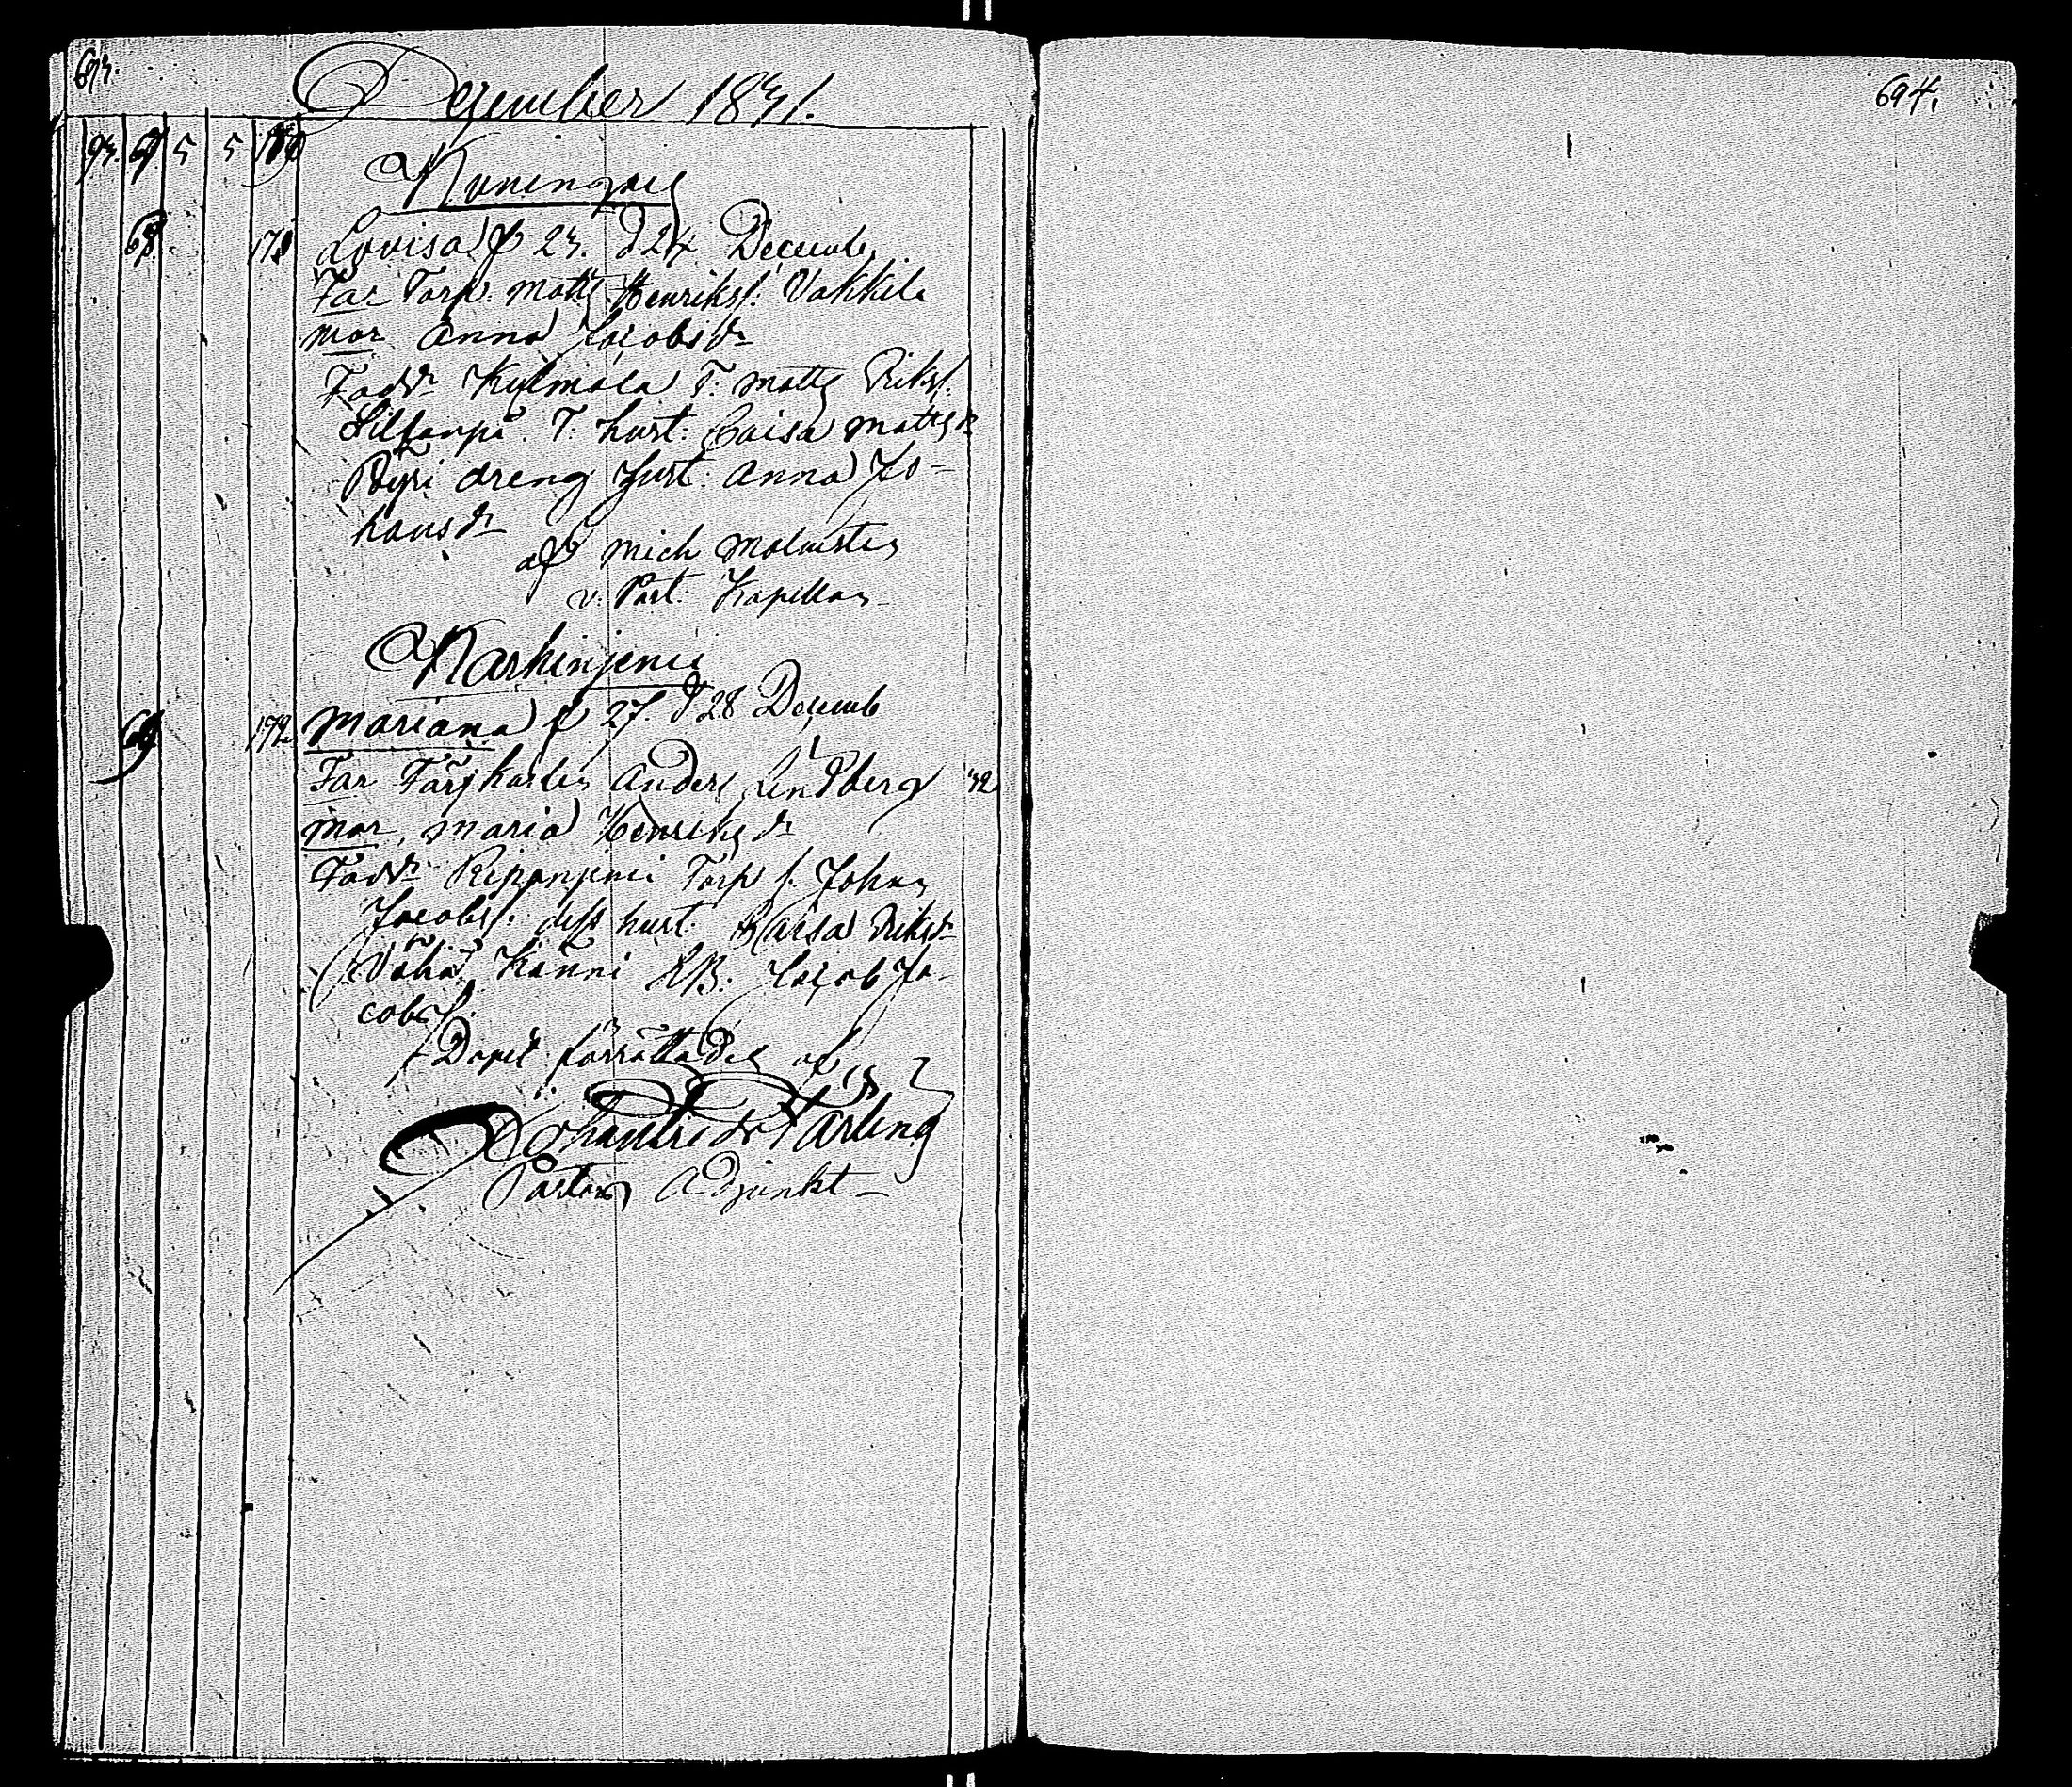 693.
December 1831.
93. 67 5 5 170
Koninques
68. 171 Lovisa f 23. d 24 Decemb.
Far Torp. Matts Henrikss. Vakkila
Mor Anna Jacobsdr
Faddr Kylmälä T. Matts Eriks.
Sillanpä T. hust. Caisa Mattsdr
Pyri dreng hust. Anna Jo-
hansdr
af Mich Malmsten
v. Past. Kapellan
Karhinjemi
69 172 Mariana f 27. d 28 Decemb
Far Färjkarlen Anders Lindberg 32
Mor Maria Henriksdr
Faddr Torp s. Johan
Jacobss. dess hust. Kaisa Eriksdr
Vähä Känni Jacob Ja-
cobss.
Dopet förrättades af
Pastors Adjunkt
694.